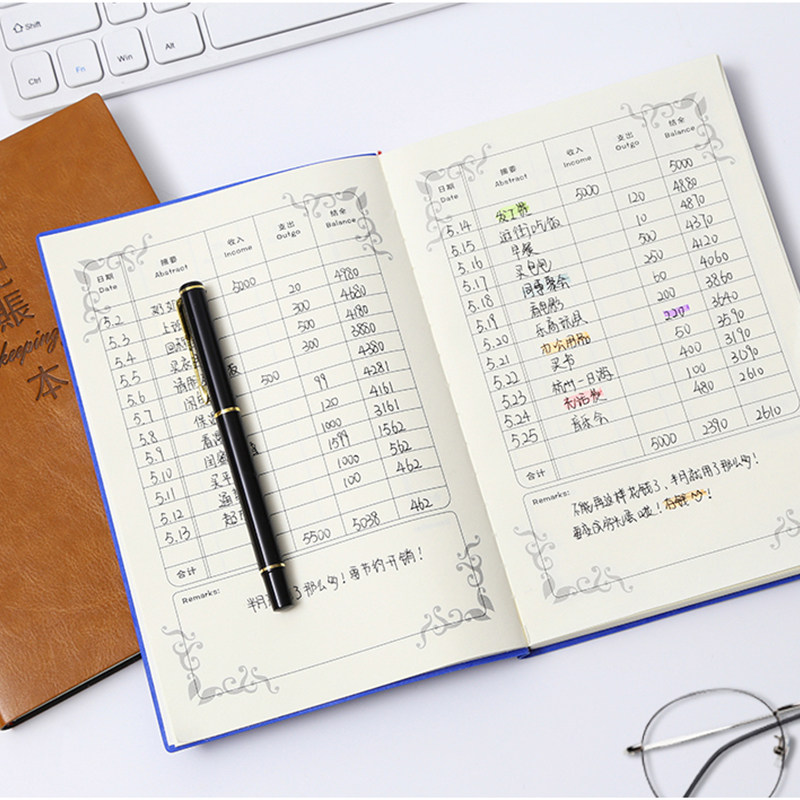 Shift
Ctrl Fn Win Alt
帳
本
keeping
日期 摘要 收入 支出 结余
Date Abstract Income Outgo Balance
5.2 5000 20 4980
5.3 300 4680
5.4 500 4180
5.5 300 3880
5.6 500 4380
5.7 99 4281
5.8 120 4161
5.9 1000 3161
5.10 1599 1562
5.11 1000 562
5.12 100 462
5.13
合计 5500 5038 462
Remarks:
半月 了那么多!要节约开销!
日期 摘要 收入 支出 结余
Date Abstract Income Outgo Balance
5.14 发工资 5000 5000
5.15 逛街吃饭 120 4880
5.16 早餐 10 4870
5.17 买包包 500 4370
5.18 同事聚会 250 4120
5.19 看电影 60 4060
5.20 乐高玩具 200 3860
5.21 办公用品 220 3640
5.22 买书 50 3590
5.23 杭州一日游 400 3190
5.24 生活费 100 3090
5.25 音乐会 480 2610
合计 5000 2390 2610
Remarks:
不能再这样花钱了,半月就用了那么多!